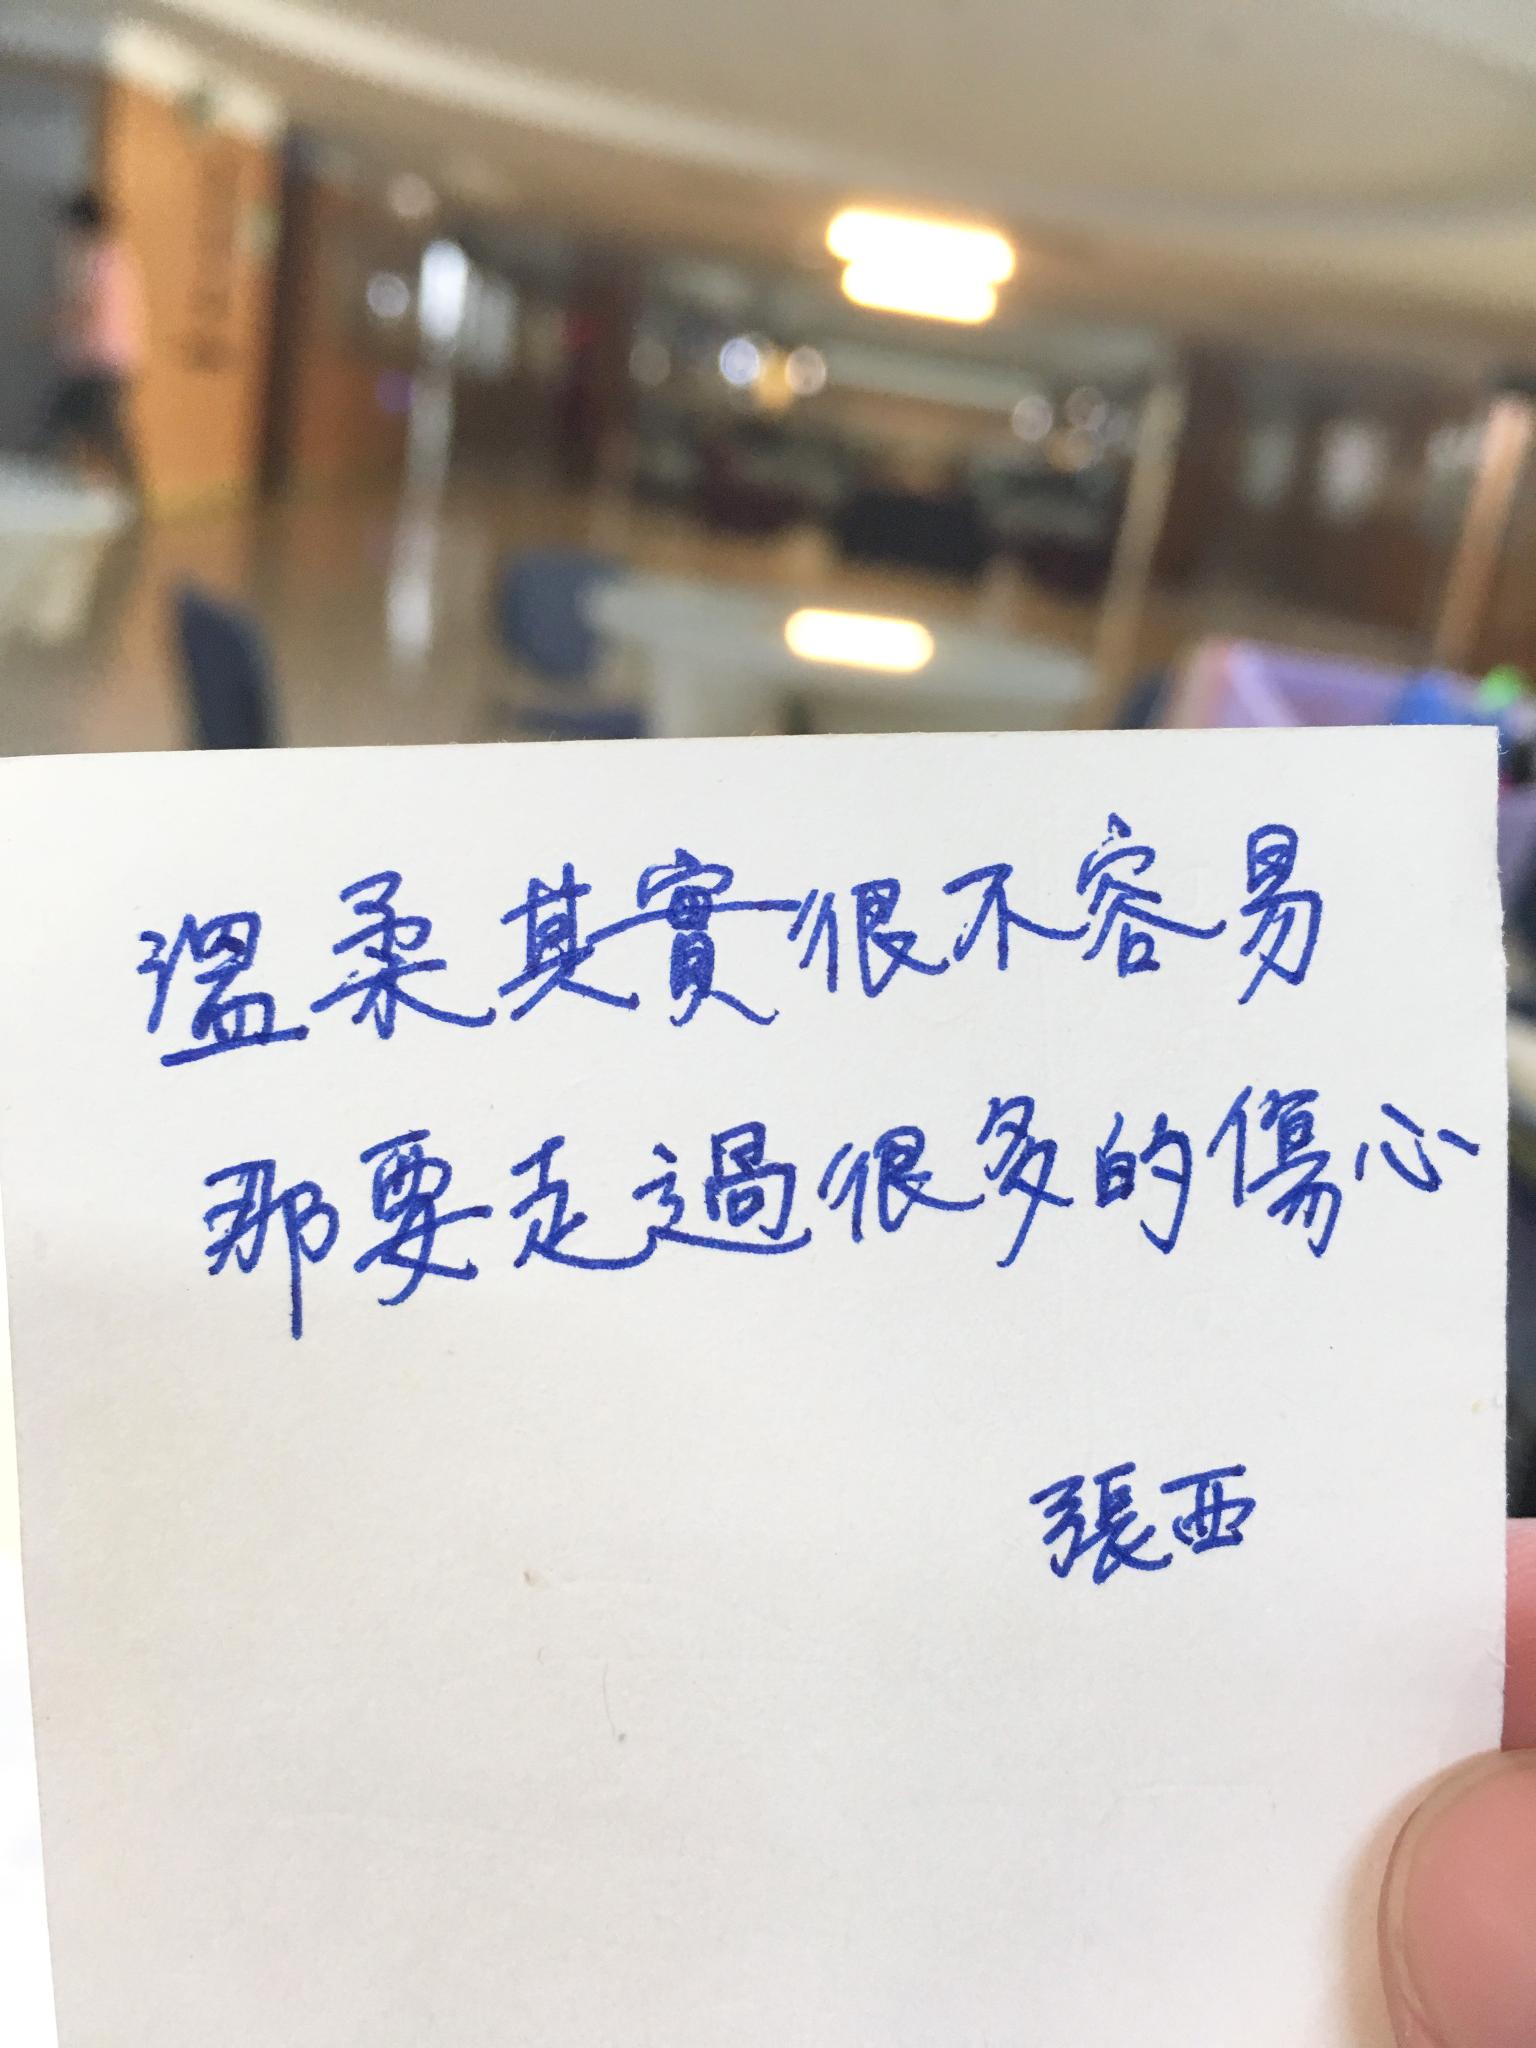 溫柔其實很不容易
那要走過很多的傷心
張西